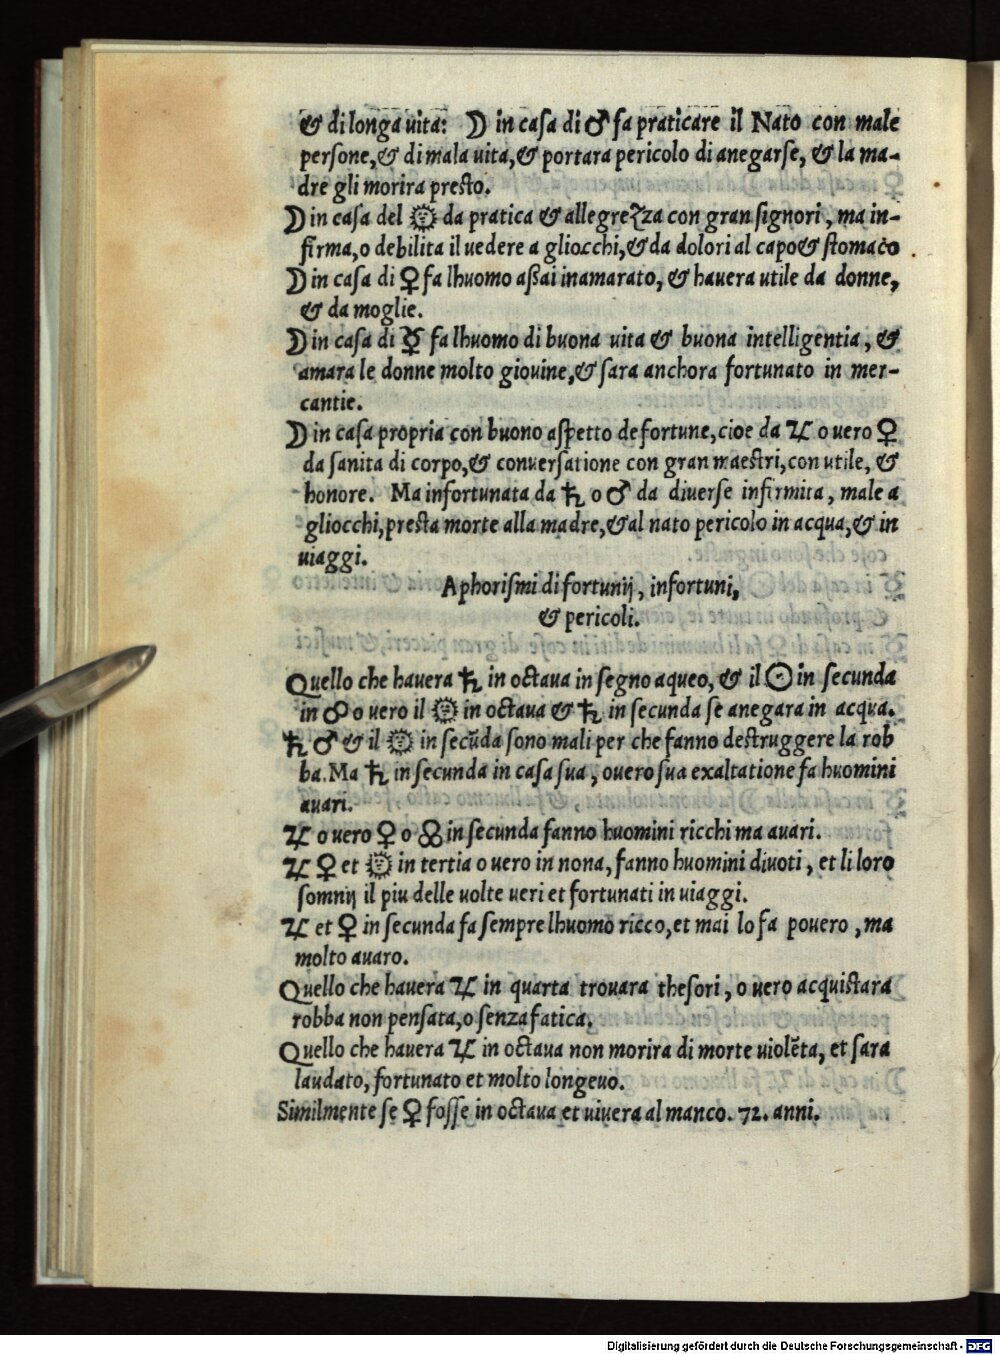 & di longa uita: ☽ in caſa di ♂ fa praticare il Nato con male
perſone, & di mala uita, & portara pericolo di anegarſe, & la ma-
dre gli morira preſto.
☽ in caſa del ☉ da pratica & allegrezza con gran ſignori, ma in-
firma, o debilita il uedere a gliocchi, & da dolori al capo & ſtomaco.
☽ in caſa di ♀ fa lhuomo aſſai inamarato, & hauera utile da donne,
& da moglie.
☽ in caſa di ☿ fa lhuomo di buona uita & buona intelligentia, &
amara le donne molto giouine, & ſara anchora fortunato in mer-
cantie.
☽ in caſa propria con buono aſpetto de fortune, cioe da ♃ o uero ♀
da ſanita di corpo, & conuerſatione con gran maeſtri, con utile, &
honore. Ma infortunata da ♄ o ♂ da diuerſe infirmita, male a
gliocchi, preſta morte alla madre, & al nato pericolo in acqua, & in
uiaggi.
Aphoriſmi di fortunij, infortuni,
& pericoli.
Quello che hauera ♄ in octaua in ſegno aqueo, & il ☉ in ſecunda
in ☍ o uero il ☉ in octaua & ♄ in ſecunda ſe anegara in acqua.
♄ ♂ & il ☉ in ſecūda ſono mali per che fanno deſtruggere la rob
ba. Ma ♄ in ſecunda in caſa ſua, ouero ſua exaltatione fa huomini
auari.
♃ o uero ♀ o ☊ in ſecunda fanno huomini ricchi ma auari.
♃ ♀ et ☉ in tertia o uero in nona, fanno huomini diuoti, et li loro
ſomnij il piu delle uolte ueri et fortunati in uiaggi.
♃ et ♀ in ſecunda fa ſempre lhuomo ricco, et mai lo fa pouero, ma
molto auaro.
Quello che hauera ♃ in quarta trouara theſori, o uero acquiſtara
robba non penſata, o ſenza fatica.
Quello che hauera ♃ in octaua non morira di morte uiolēta, et ſara
laudato, fortunato et molto longeuo.
Similmente ſe ♀ foſſe in octaua et uiuera al manco. 72. anni.
Digitalisierung gefördert durch die Deutsche Forschungsgemeinschaft - DFG